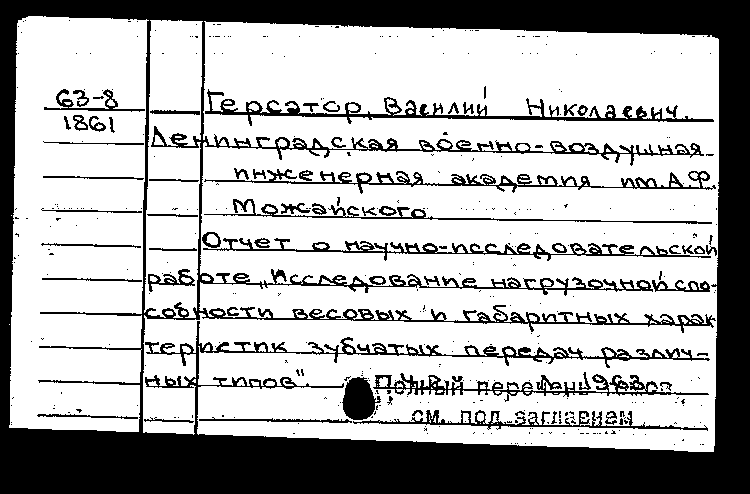 63-8
1861
Герсатор, Василий Николаевич.
Ленинградская военно-воздушная
инженерная академия им. А.Ф.
Можайского.
Отчет о научно-исследовательской
работе „Исследование нагрузочной спо-
собности весовых и габаритных харак
теристик зубчатых передач различ-
ных типов".
Л. 1963
Полный перечень
см. под заглавием